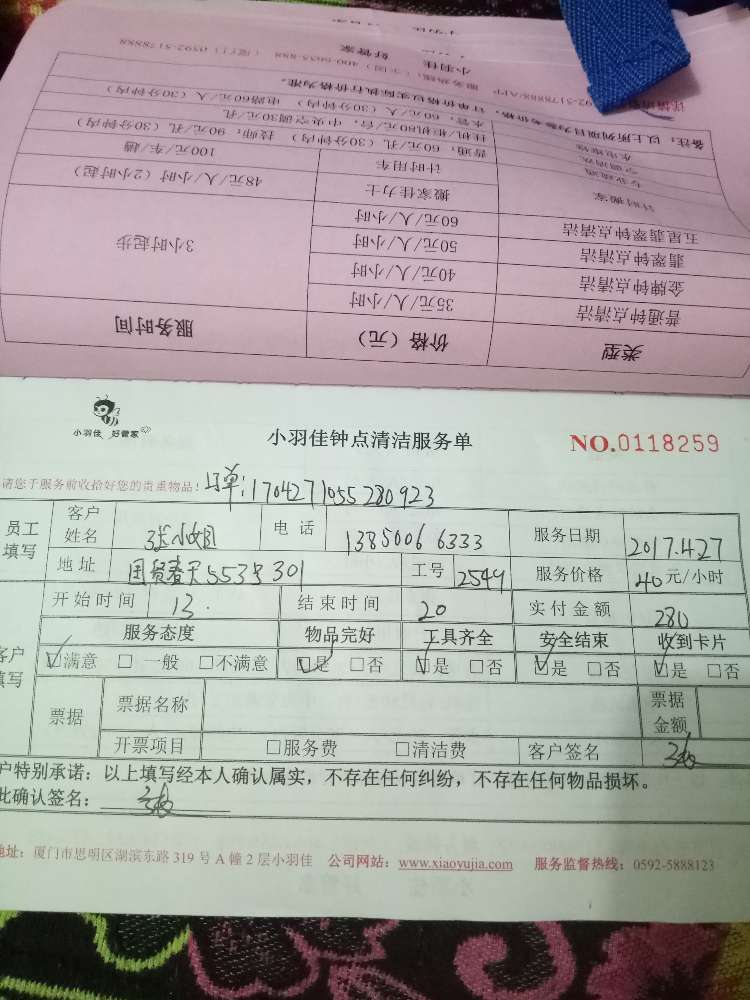 小羽佳 好管家
服务热线：（全国）400-0055-888 （厦门）0592-5178888
备注：以上所列项目为参考价格，订单价格以实际执行价格为准。
水电维修 水管：60元/人（30分钟内） 电路60元/人（30分钟内）
空调清洗 挂机/柜机180元/台，中央空调30元/孔
专业疏通 普通：60元/孔（30分钟内） 技师：90元/孔（30分钟内）
计时搬家 计时用车 100元/车/趟
搬家佳力士 48元/人/小时（2小时起）
五星翡翠钟点清洁 60元/人/小时 3小时起步
翡翠钟点清洁 50元/人/小时
金牌钟点清洁 40元/人/小时
普通钟点清洁 35元/人/小时
类型 价格（元） 服务时间
小羽佳 好管家
小羽佳钟点清洁服务单
NO.0118259
请您于服务前收拾好您的贵重物品！
订单:1704271055280923
员工填写 客户姓名 张小姐 电话 13850066333 服务日期 2017.4.27
地址 国贸春天553号301 工号 2549 服务价格 40元/小时
开始时间 13. 结束时间 20 实付金额 280
服务态度 物品完好 工具齐全 安全结束 收到卡片
客户填写 ☑满意 □一般 □不满意 ☑是 □否 ☑是 □否 ☑是 □否 ☑是 □否
票据 票据名称 票据金额
开票项目 □服务费 □清洁费 客户签名
户特别承诺：以上填写经本人确认属实，不存在任何纠纷，不存在任何物品损坏。
此确认签名：
地址：厦门市思明区湖滨东路319号A幢2层小羽佳 公司网站：www.xiaoyujia.com 服务监督热线：0592-5888123